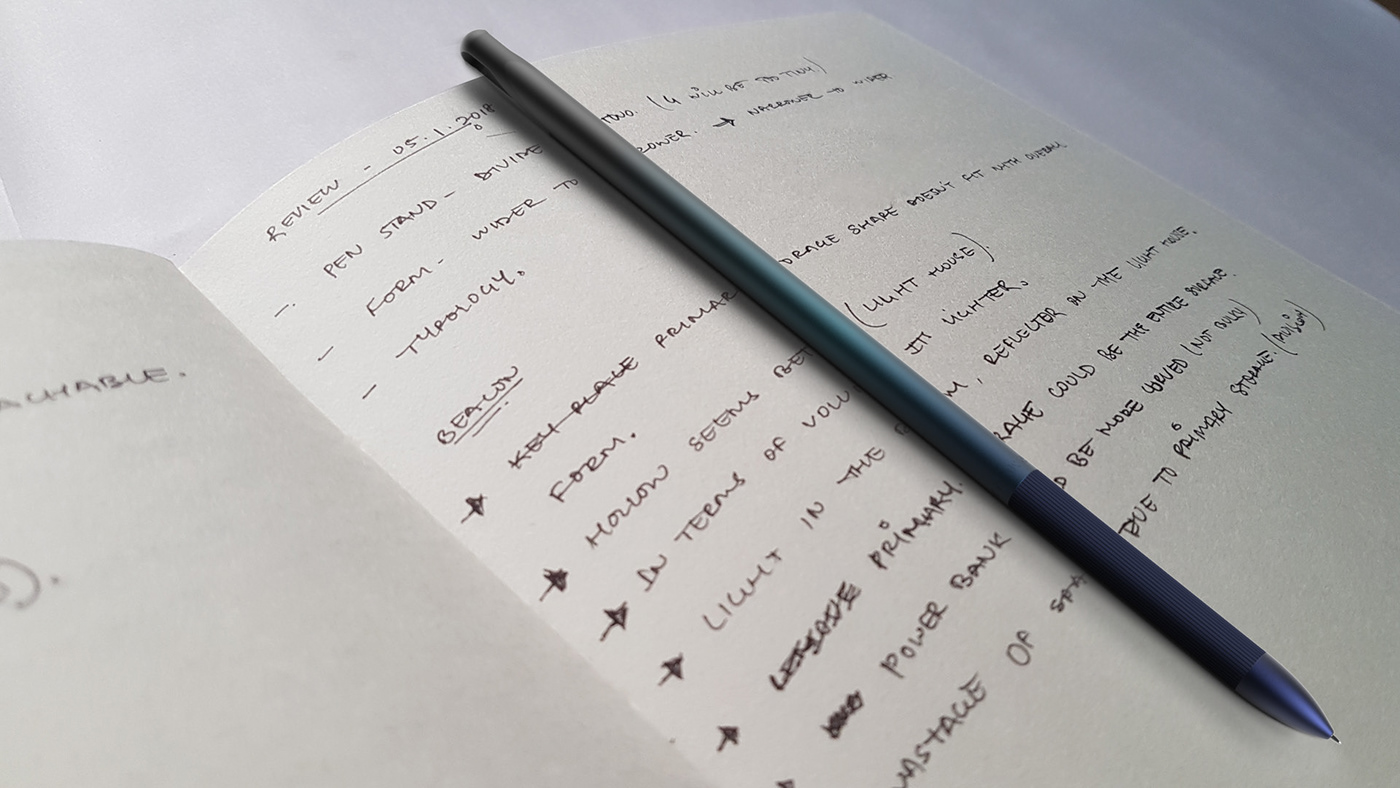 ACHABLE.
REVIEW - 05.1.2018
- PEN STAND - DIVIDE TWO. (4 WILL BE TOO TINY.)
- FORM - WIDER TO → NARROWER TO WIDER
- TYPOLOGY.
BEACON
KEY PLACE PRIMAR ORAGE SHAPE DOESN'T FIT WITH OVERALL
FORM.
HOLLOW SEEMS BET (LIGHT HOUSE).
IN TERMS OF VOLU IT LIGHTER.
LIGHT IN THE , REFLECTER ON THE LIGHT HOUSE.
PRIMARY. RAGE COULD BE THE ENTIRE SURFACE.
POWER BANK D BE MORE CURVED (NOT BULKY)
WASTAGE OF DUE TO PRIMARY STORAGE.